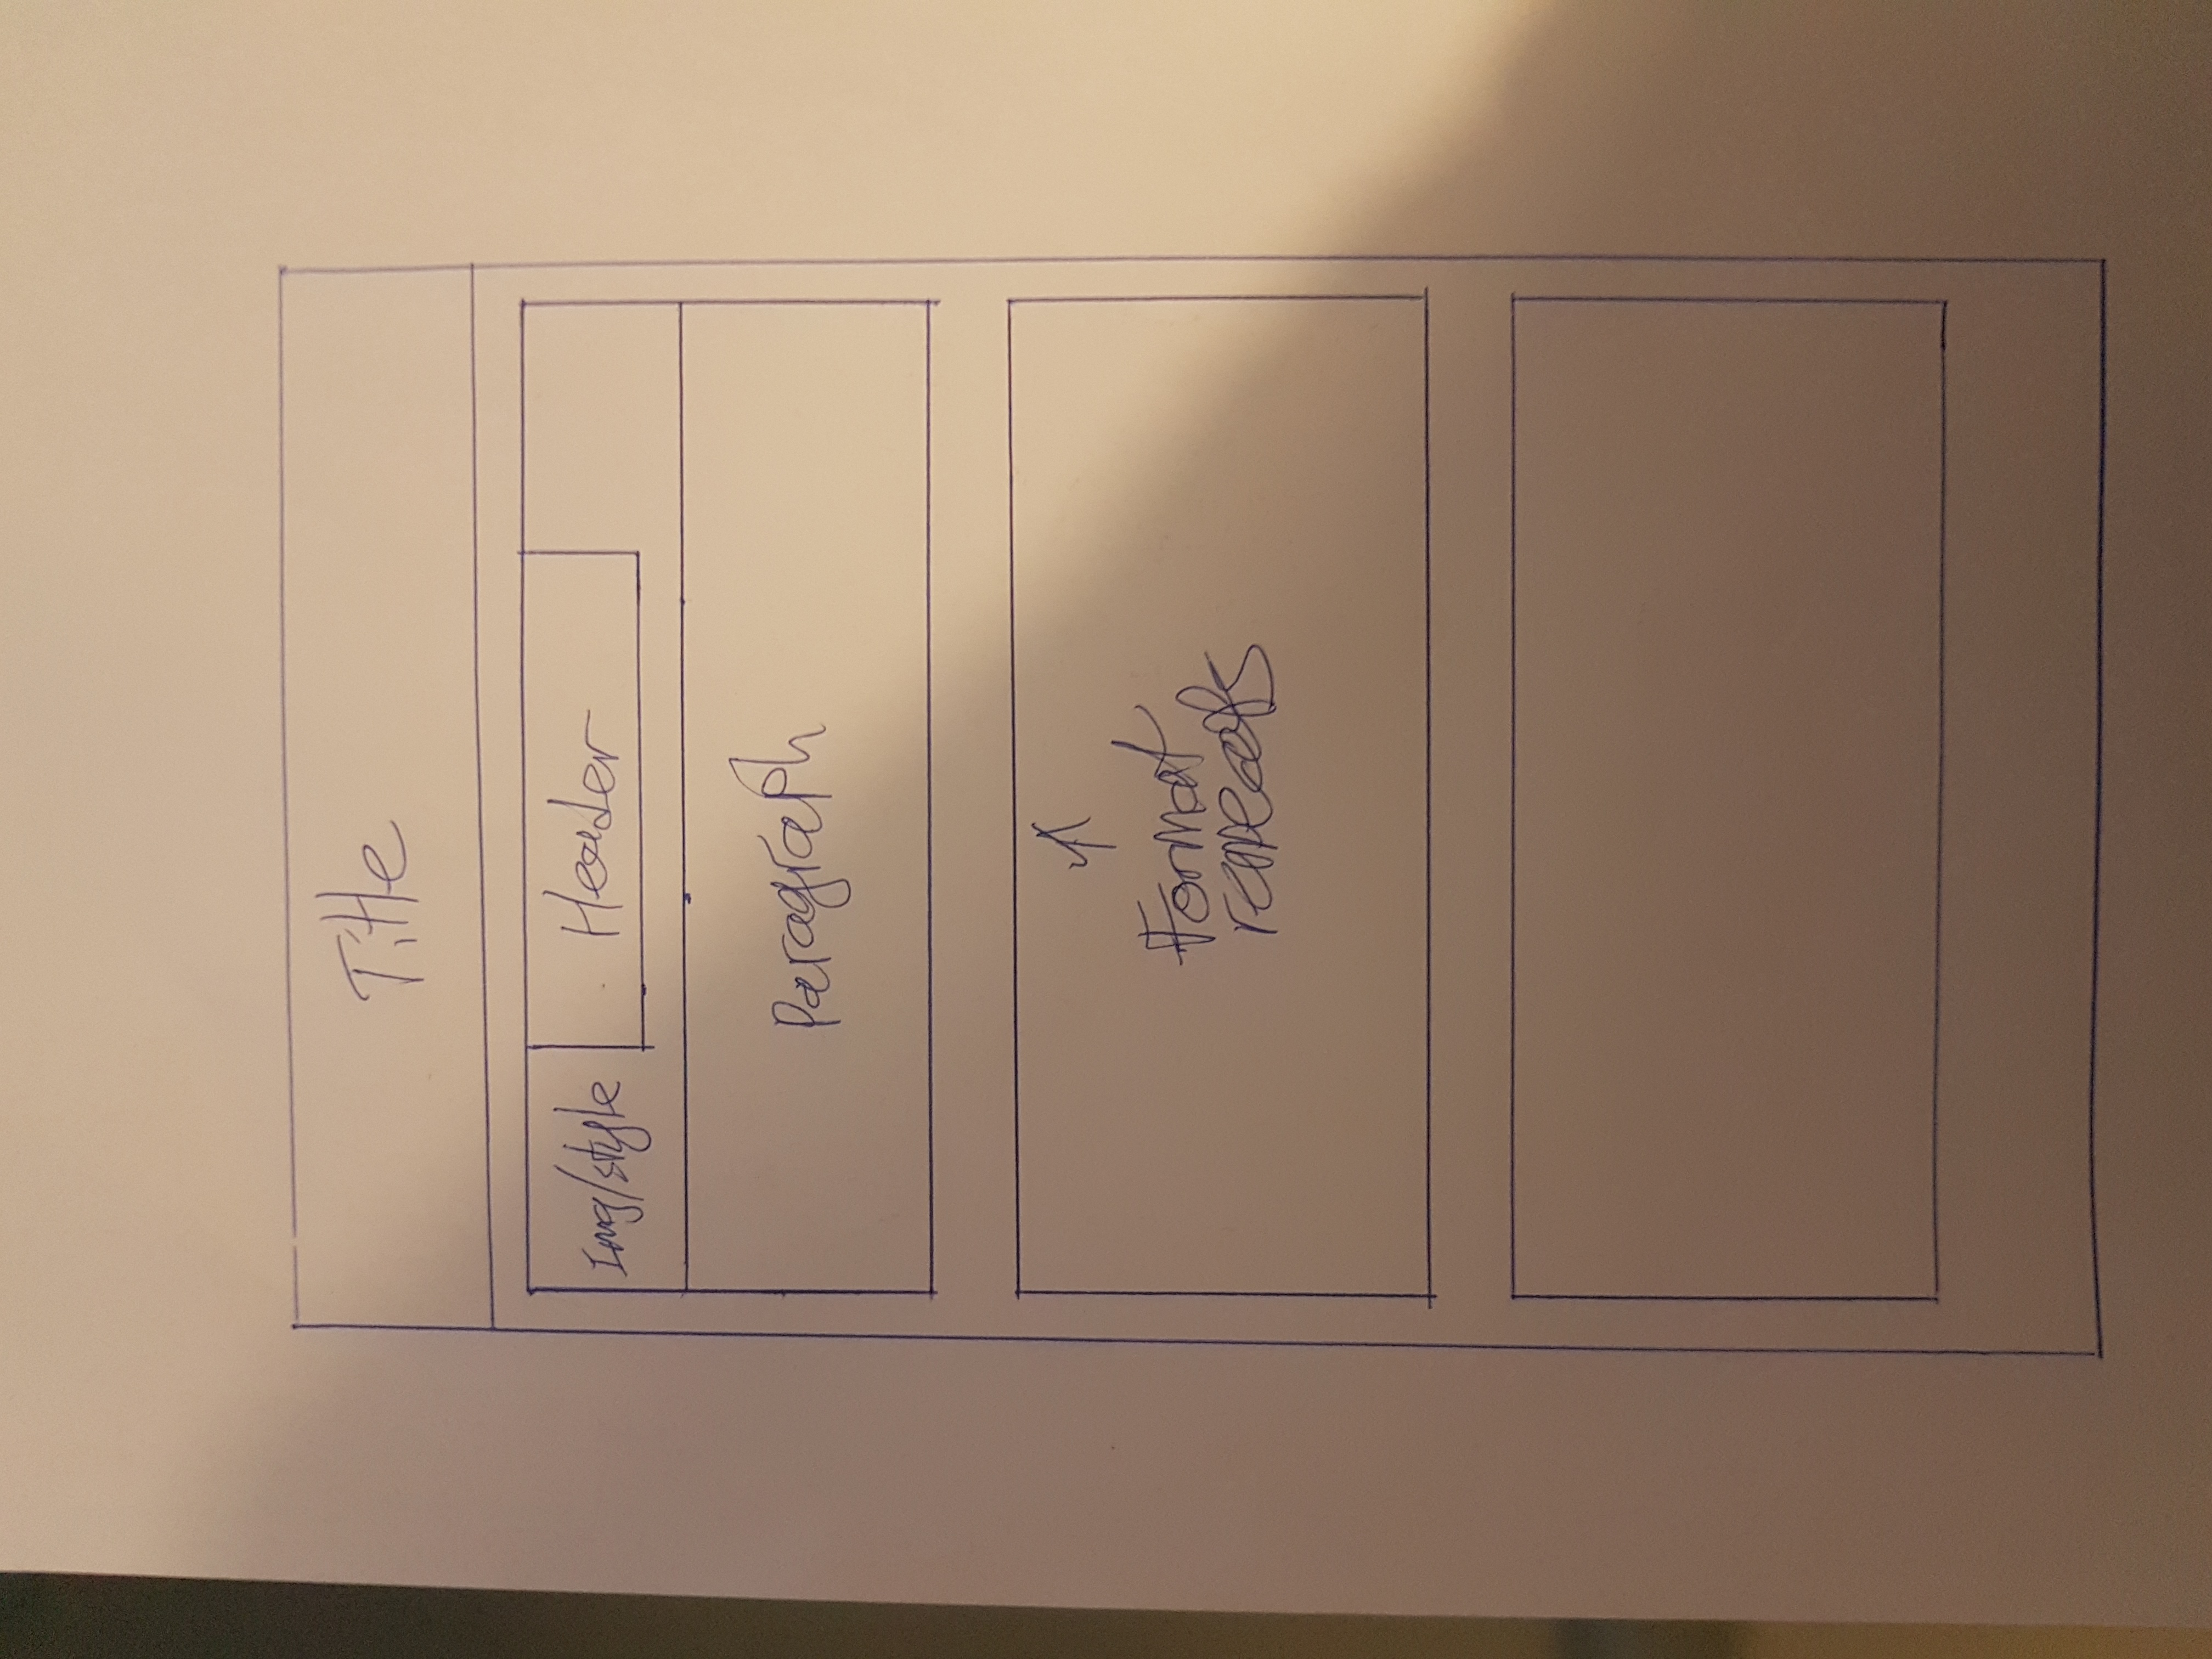 Title
Img/style
Header
Paragraph
Format
repeats